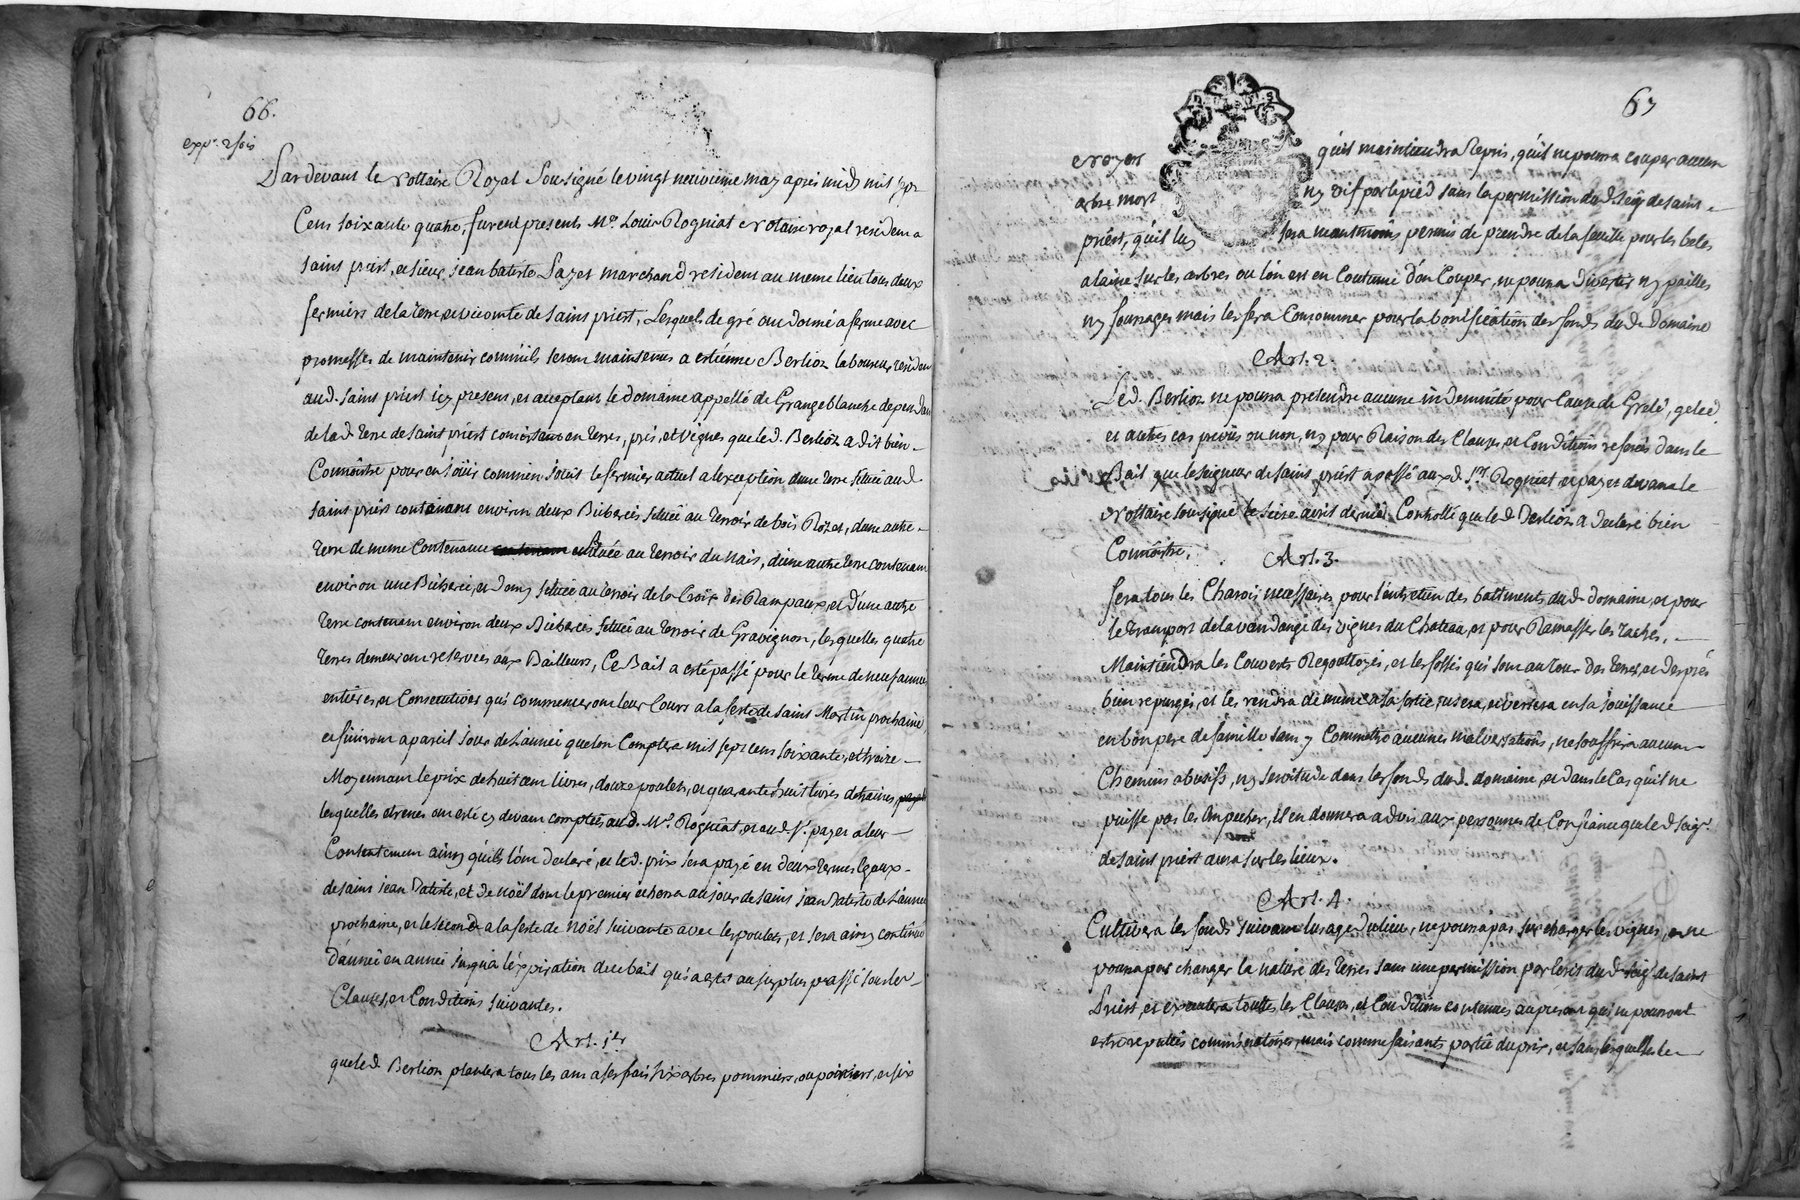 66.
expé. 2 fois
Pardevant le Nottaire Royal Sousigné le vingt neuvieme may apres midy mil sept
Cens soixante quatre, furent presents Me. Louis Rogniat Notaire royal resident a
saint priest, et sieur jean batiste Payet marchand resident au meme lieu tous deux
fermiers de la terre et vicomté de saint priest, Lesquels de gré ont donné a ferme avec
promesses de maintenir comm'ils seront maintenus a estienne Berlioz laboureur resident
aud. saint priest icy present, et acceptant le domaine appellé de Grange blanche dependant
de lad. terre de saint priest consistant en terres, prés, et vignes que led. Berlioz a dit bien
Connoitre pour en joüir comm'en joüit le fermier actuel a l'exception d'une terre située aud.
saint priest contenant environ deux Bicherées située au terroir de bois Rozet, d'une autre
terre de meme Contenance située au terroir du nais, d'une autre terre contenant
environ une Bicherée, et demy située au terroir de la Croix des Rampaux, et d'une autre
terre contenant environ deux Bicherées située au terroir de Gravignon, lesquelles quatre
terres demeuront reservées aux Bailleurs, Ce Bail a esté passé pour le terme de neuf années
entieres, et Consecutives qui commenceront leur Cours a la feste de saint Martin prochaine
et finiront a pareil jour de L'année que l'on Comptera mil sept cens soixante, et treize
Moyennant le prix de huit cent livres, douze poulets, et quarante huit livres d'etraines,
lesquelles etrenes ont esté cy devant comptées aud. Me. Rogniat, et aud. Sr. payet a leur
Contentement ainsy qu'ils l'ont declaré, et led. prix sera payé en deux termes egaux
de saint jean Batiste, et de noël dont le premier echerra au jour de saint jean Batiste de L'année
prochaine, et le second a la feste de noël suivante avec les poulets, et sera ainsy continué
d'année en année jusqu'a l'expiration de ce bail qui a esté au surplus passé sous les
Clauses, et Conditions suivantes.
Art. 1er
que led. Berlioz plantera tous les ans a ses frais six arbres pommiers, ou poiriers, et six
67
noyers qu'il maintiendra Repris, qu'il ne pourra couper aucun
arbre mort ny vif par le pied sans la permission dud. seigr de saint
priest, qu'il luy sera neantmoins permis de prendre de la feuille pour les betes
a laine sur les arbres ou l'on est en Coutume d'en Couper, ne pourra divertir ny pailles
ny fourrages mais les fera Consommer pour la bonification des fonds dud. Domaine
Art. 2.
Led. Berlioz ne pourra pretendre aucune indemnité pour Cause de Grele, gelée
et autres cas prevûs ou non, ny pour Raison des Clauses, et Conditions referés dans le
Bail que le seigneur de saint priest a passé auxd. Srs. Rogniat et payet devant le
Nottaire sousigné le seize avril dernier Controllé que led. Berlioz a declaré bien
Connoitre.
Art. 3.
fera tous les Charois necessaires pour l'entretien des battiments dud. domaine, et pour
le transport de la vandange des vignes du Chateau, et pour Ramasser les taches.
Maintiendra les Couverts Regouttoyés, et les fossés qui sont au tour des terres, et des prés
bien repurgés, et les rendra de meme a sa sortie, usera, et versera en sa joüissance
en bon pere de famille sans y Commettre aucunes malversations, ne souffrira aucun
Chemins abusifs, ny servitude dans les fonds dud. domaine, et dans le Cas qu'il ne
puisse pas les Empecher, il en donnera advis aux personnes de Confiance que led. seigr.
de saint priest aura sur les lieux.
Art. 4.
Cultivera les fonds suivant lusage du lieu, ne pourra pas surcharger les vignes, et ne
pourra pas changer la nature des terres sans une permission par écrit dud. seigr de saint
Priest, et executera touttes les Clauses, et Conditions contenues au present qui ne pourront
estre reputées comminatoires, mais comme faisants partie du prix, et sans lesquelles le